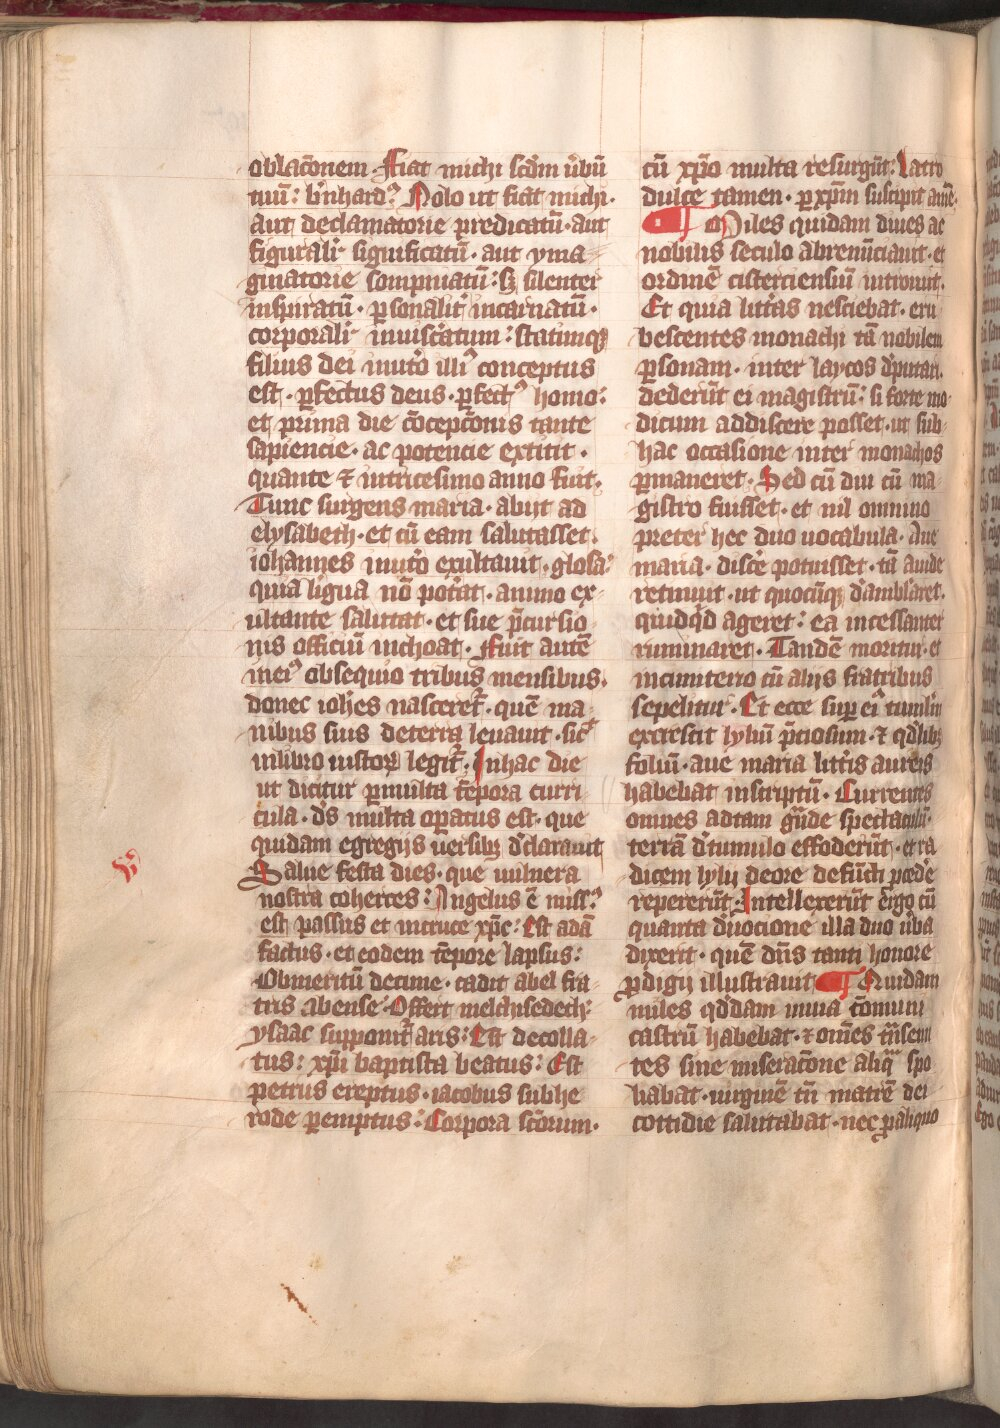 oblac̄onem · Fiat michi scd̄m ūbū
tuū: b̓nhardꝰ Nolo ut fiat michi ·
aut declamatorie predicatū · aut
figurali᷑ significatū · aut yma
ginatorie sompniatū: sꝫ silenter
inspiratū · ꝑsonalit᷑ incarnatū ·
corporali᷑ inuisc̓atum: statimqꝫ
filius dei inut̓o illiꝰ conceptus
est · ꝑfectus deus · ꝑfectꝰ homo:
et prima die c̄ocepc̄onis tante
sapiencie · ac potencie extitit ·
quante ⁊ intricesimo anno fuit ·
Tunc surgens maria · abijt ad
elysabeth · et cū eam salutasset ·
iohannes inut̓o exultauit · glosa:
quia līgua nō pot̓at · animo ex-
ultante salutat · et sue p̄cursio
nis officiū inchoat · Fuit autē
ineiꝰ obsequio tribus mensibus ·
donec ioh̄es nascere᷑t · quē ma
nibus suis deterra leuauit · sic̄
inlibro iustoꝝ legit᷑ · Inhac die
ut dicitur ꝑmulta t̄epora curri
cula · d̓s multa oꝑatus est · que
quidam egregijs uersibꝫ d̓clarauit
Salue festa dies · que uulnera
nostra coherces: Angelus ē missꝰ
est passus et incruce xp̄c: Est adā
factus · et eodem t̄epore lapsus:
Obmeritū decime · cadit abel fra
tris abense: Offert melchisedech:
ysaac supponit᷑ aris: Est decolla
tus: xp̄i baptista beatus: Est
petrus ereptus · iacobus subhe
rode ꝑemptus: Corpora sc̄orum ·
cū xp̄o multa resurgūt: Latro
dulce tamen · ꝑ xp̄m suscipit amē ·
Miles quidam diues ac
nobilis seculo abrenūciauit · et
ordinē cisterciensiū intrauit ·
Et quia litt̓as nesciebat · eru
bescentes monachi tā nobilem
ꝑsonam · inter laycos d̓putari ·
dederūt ei magistrū: si forte mo
dicum addiscere posset · ut sub
hac occasione inter monachos
ꝑmaneret · Sed cū diu cū ma
gistro fuisset · et nil omnino
preter hec duo uocabula · Aue
maria · disc̓e potuisset · tā auide
retinuit · ut quocūqꝫ d̓ambl̓aret ·
quidq̓d ageret: ea incessanter
ruminaret · Tandē moritur · et
incimiterio cū alijs fratribus
sepelitur · Et ecce suꝑ eiꝰ tumulū
excrescit lyliū p̄ciosum · ⁊ qd̓libꝫ
foliū · aue maria litt̓is aureis
habebat inscriptū · Currentes
omnes adtam gn̄de spectaculū ·
terrā d̓tumulo effoderūt · et ra
dicem lylij deore defūcti ꝓced̓e
repererūt · Intellexerūt ergo cū
quanta d̓uocione illa duo ūba
dixerit · quē dn̄s tanti honore
ꝓdigij illustrauit Quidam
miles qd̓dam inuia c̄omuni
castrū habebat · ⁊ om̄es t̄nseun
tes sine miserac̄one aliq̄ spo
liabat · uirginē tn̄ matrē dei
cottidie salutabat · nec ꝑ aliquo